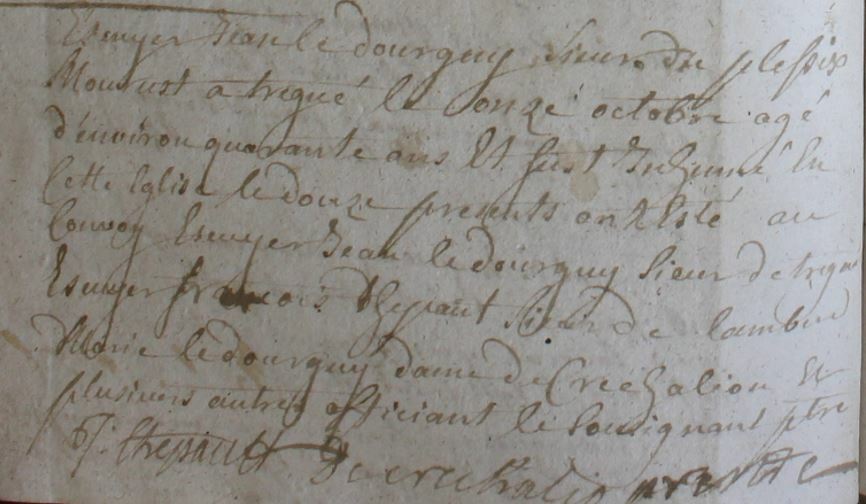 Escuyer Jean le dourguy Sieur du plessix
Mourust a tregué le onze octobre agé
d'environ quarante ans Et fust Inhumé En
Cette Eglise le douze presents ont Esté au
Convoy Escuyer Jean le dourguy Sieur de
Escuyer francois thepaut Sieur de
Marie le dourguy dame de Crechalion Et
plusieurs autres officiant le Soubsignant ptre
thepault